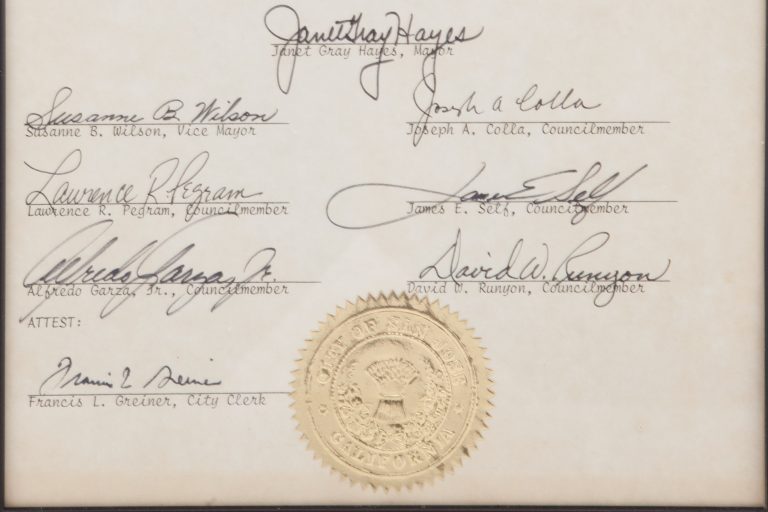 Janet Gray Hayes
Janet Gray Hayes, Mayor
Susanne B. Wilson
Susanne B. Wilson, Vice Mayor
Joseph A Colla
Joseph A. Colla, Councilmember
Lawrence R. Pegram
Lawrence R. Pegram, Councilmember
James E Self
James E. Self, Councilmember
Alfredo Garza, Jr.
Alfredo Garza, Jr., Councilmember
David W. Runyon
David W. Runyon, Councilmember
ATTEST:
Francis L Greiner
Francis L. Greiner, City Clerk
CITY OF SAN JOSE
CALIFORNIA